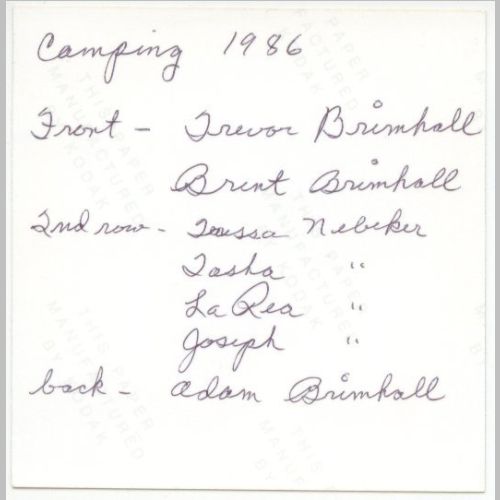 Camping 1986
Front - Trevor Brimhall
Brent Brimhall
2nd row - Tessa Nebeker
Tasha "
LaRea "
Joseph "
back - Adam Brimhall
THIS PAPER
MANUFACTURED
BY KODAK